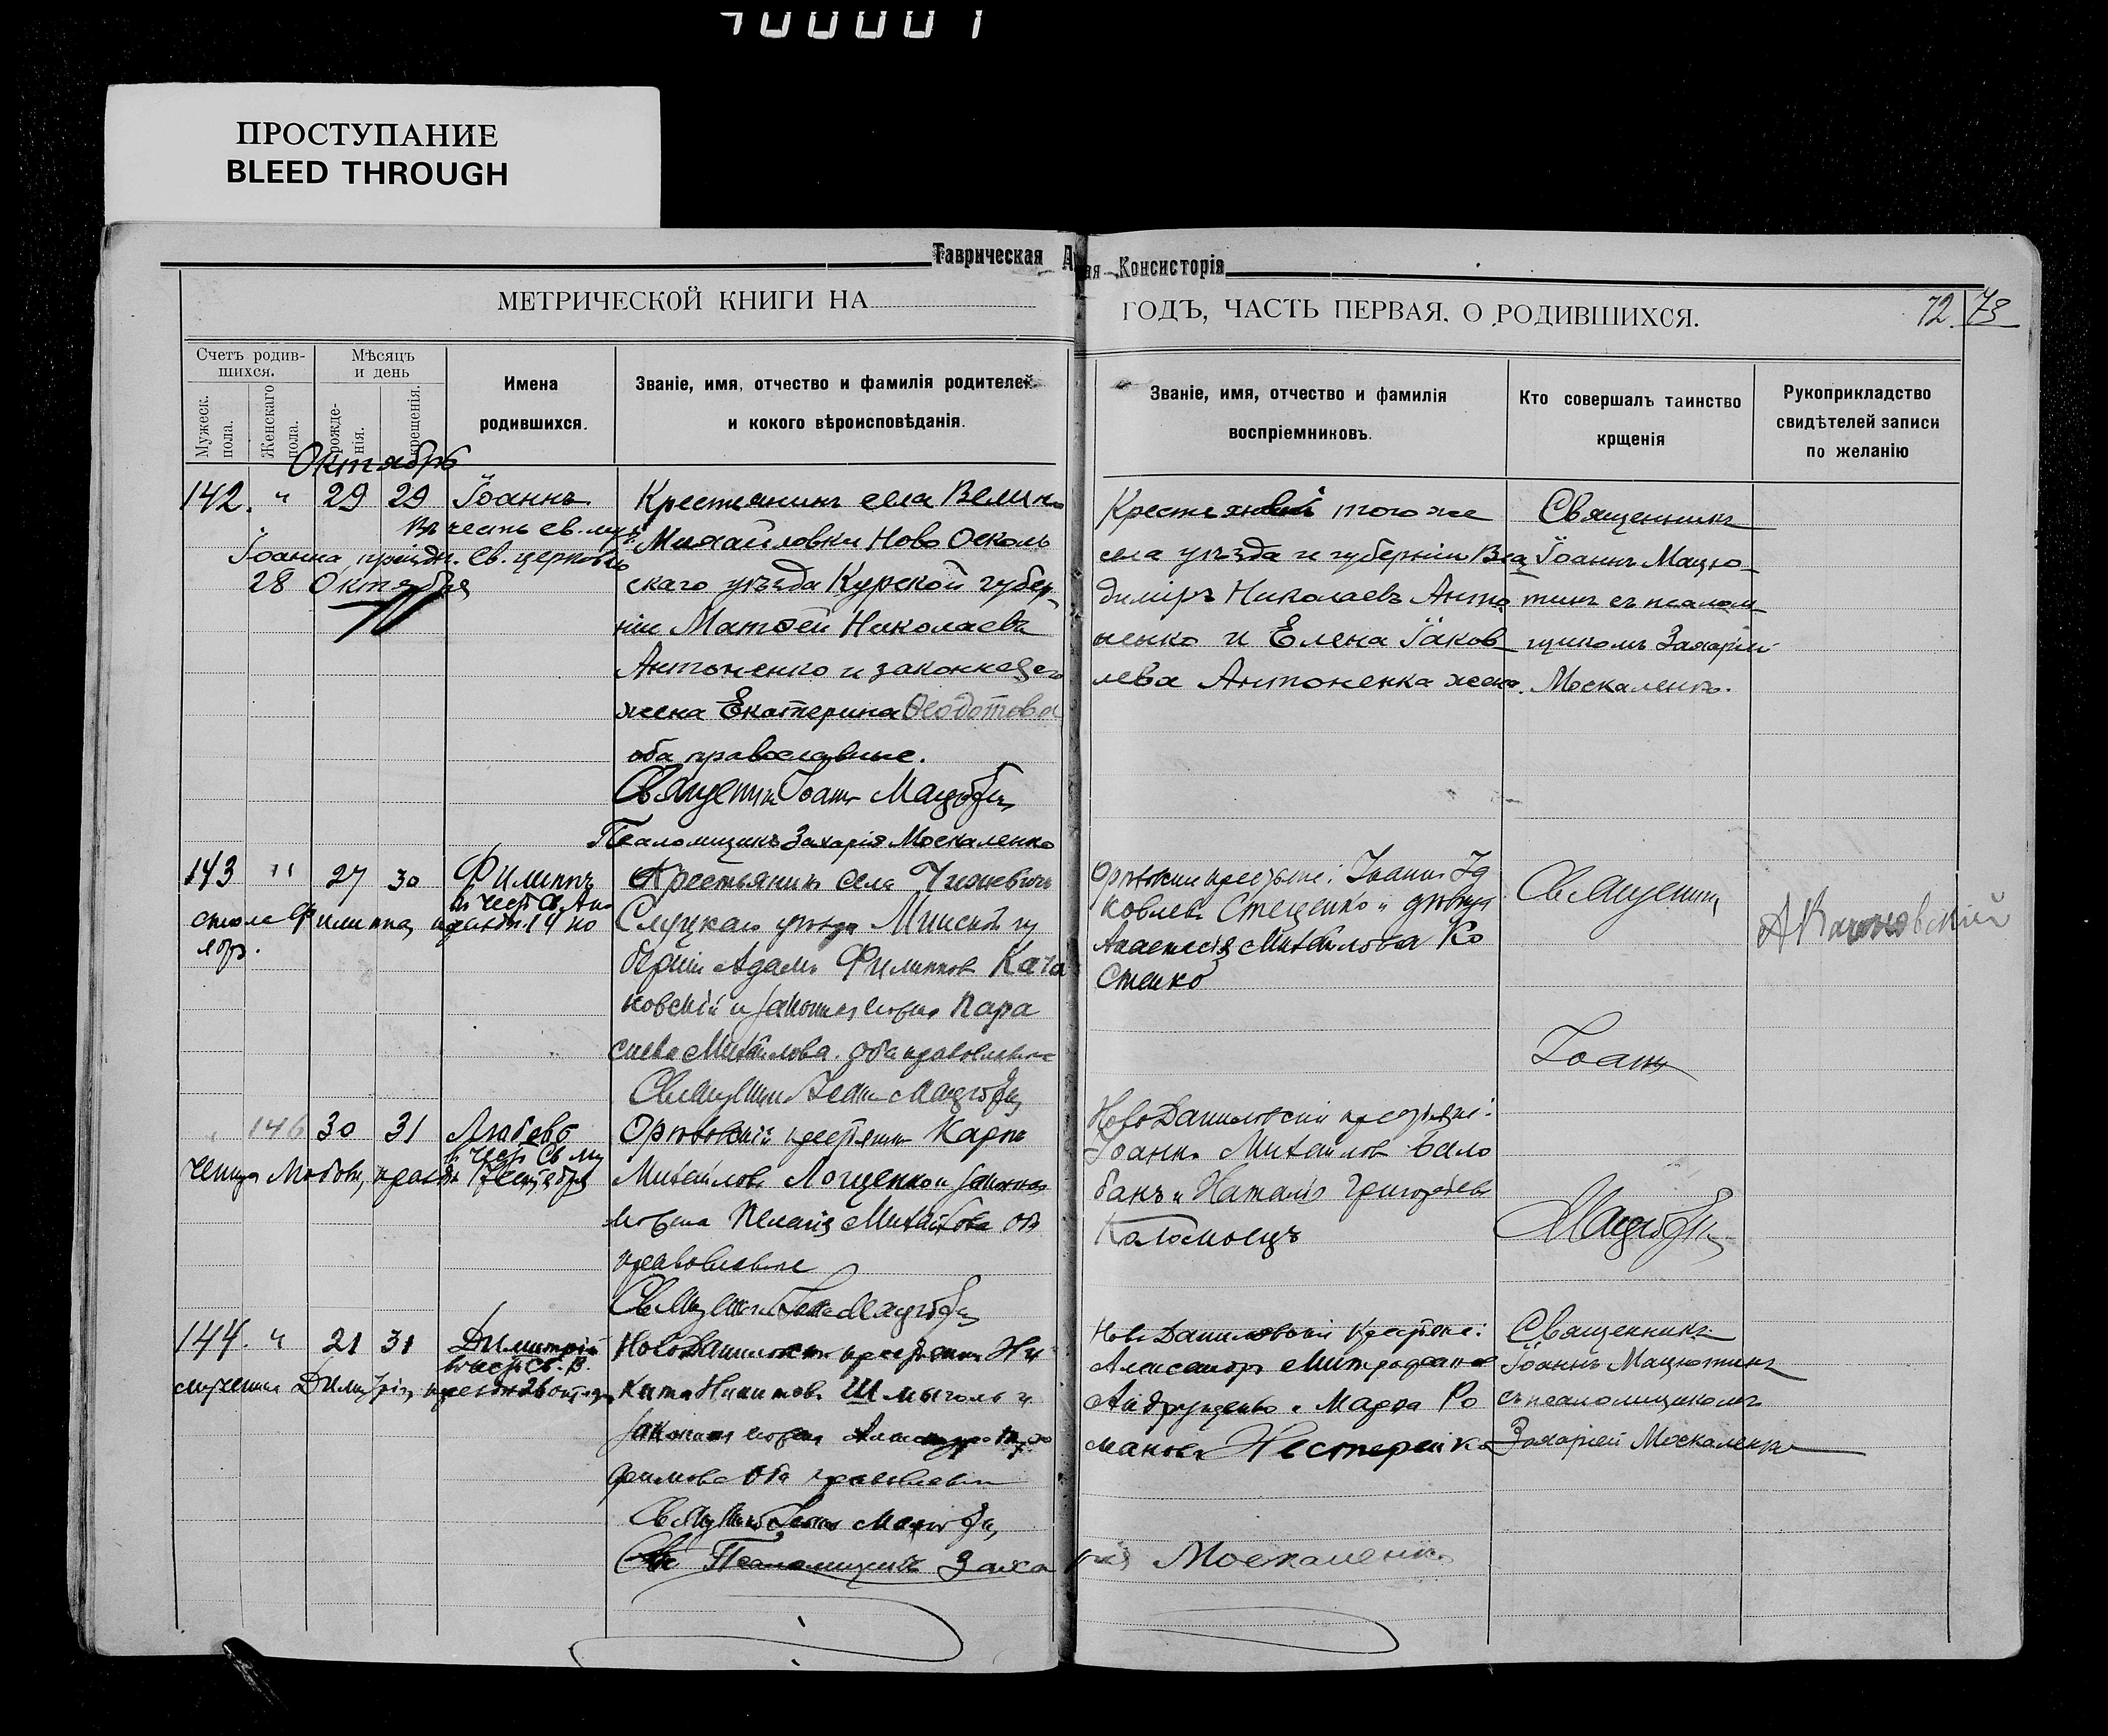 1000001
ПРОСТУПАНИЕ
BLEED THROUGH
Таврическая
Консисторія
МЕТРИЧЕСКОЙ КНИГИ НА
ГОДЪ, ЧАСТЬ ПЕРВАЯ. О РОДИВШИХСЯ.
72 73
Счетъ родив-
шихся.
Мужеск.
пола.
Женскаго
пола.
Мѣсяцъ
и день
рожде-
нія.
крещенія.
Имена
родившихся.
Званіе, имя, отчество и фамилія родителей
и кокого вѣроисповѣданія.
Званіе, имя, отчество и фамилія
воспріемниковъ.
Кто совершалъ таинство
крщенія
Рукоприкладство
свидѣтелей записи
по желанію
Октябрь
142. " 29 29 Іоаннъ
Въ честь св. муч.
Іоанна, праздн. Св. церковью
28 Октября
Крестьянинъ села Велико
Михайловки Ново Осколь
скаго уѣзда Курской губер-
ніи Матѳей Николаевъ
Антоненко и законная его
жена Екатерина Ѳеодотова
оба православные.
Священникъ Іоаннъ
Псаломщикъ Захарія Москаленко
того же
села уѣзда и губерніи Вла
диміръ Николаевъ Анто
ненко и Елена Іаков
лева Антоненка жена.
Священникъ
Іоаннъ Мацю-
тинъ съ псалом
щикомъ Захаріей
Москаленко.
143 " 27 30 Филиппъ
въ честь Св. Апо
стола Филиппа, праздн. 14 но
ябр.
Крестьянинъ села
Слуцкаго уѣзда Минской гу
берніи Адамъ Филиппов Кача
новскій и законная жена Пара
скева Михайлова. оба православные
Священникъ Іоаннъ
крестьяне: Іоаннъ Іа
ковлевъ Стеценко и
Анастасія Михайлова Ко
стенко
Священникъ
Іоаннъ
146 30 31 Любовь
въ честь Св. му
ченицы Любови, праздн. 17 сентября
крестьянинъ Карпъ
Михайловъ Лощенко и законная
жена Пелагія Михайлова оба
православные
Священникъ Іоаннъ
Ново Даниловскіи крестьяне:
Іоаннъ Михайлов Бало
банъ и Наталія Григорьева
Коломоецъ
144. " 21 31 Димитрій
въ честь св. В.
мученика Димитрія, праздн. 26 октября
Ново Даниловскій крестьянинъ Ни
кита Никитовъ Шмыголь и
законная жена
фимова Оба православные
Священникъ Іоаннъ
Псаломщикъ Захарія Москаленко
Ново Даниловскіи Крестьяне:
Александръ Митрофанов
Андрущенко и Марѳа Ро
манова Нестеренко
Священникъ
Іоаннъ Мацютинъ
съ псаломщикомъ
Захаріей Москаленко